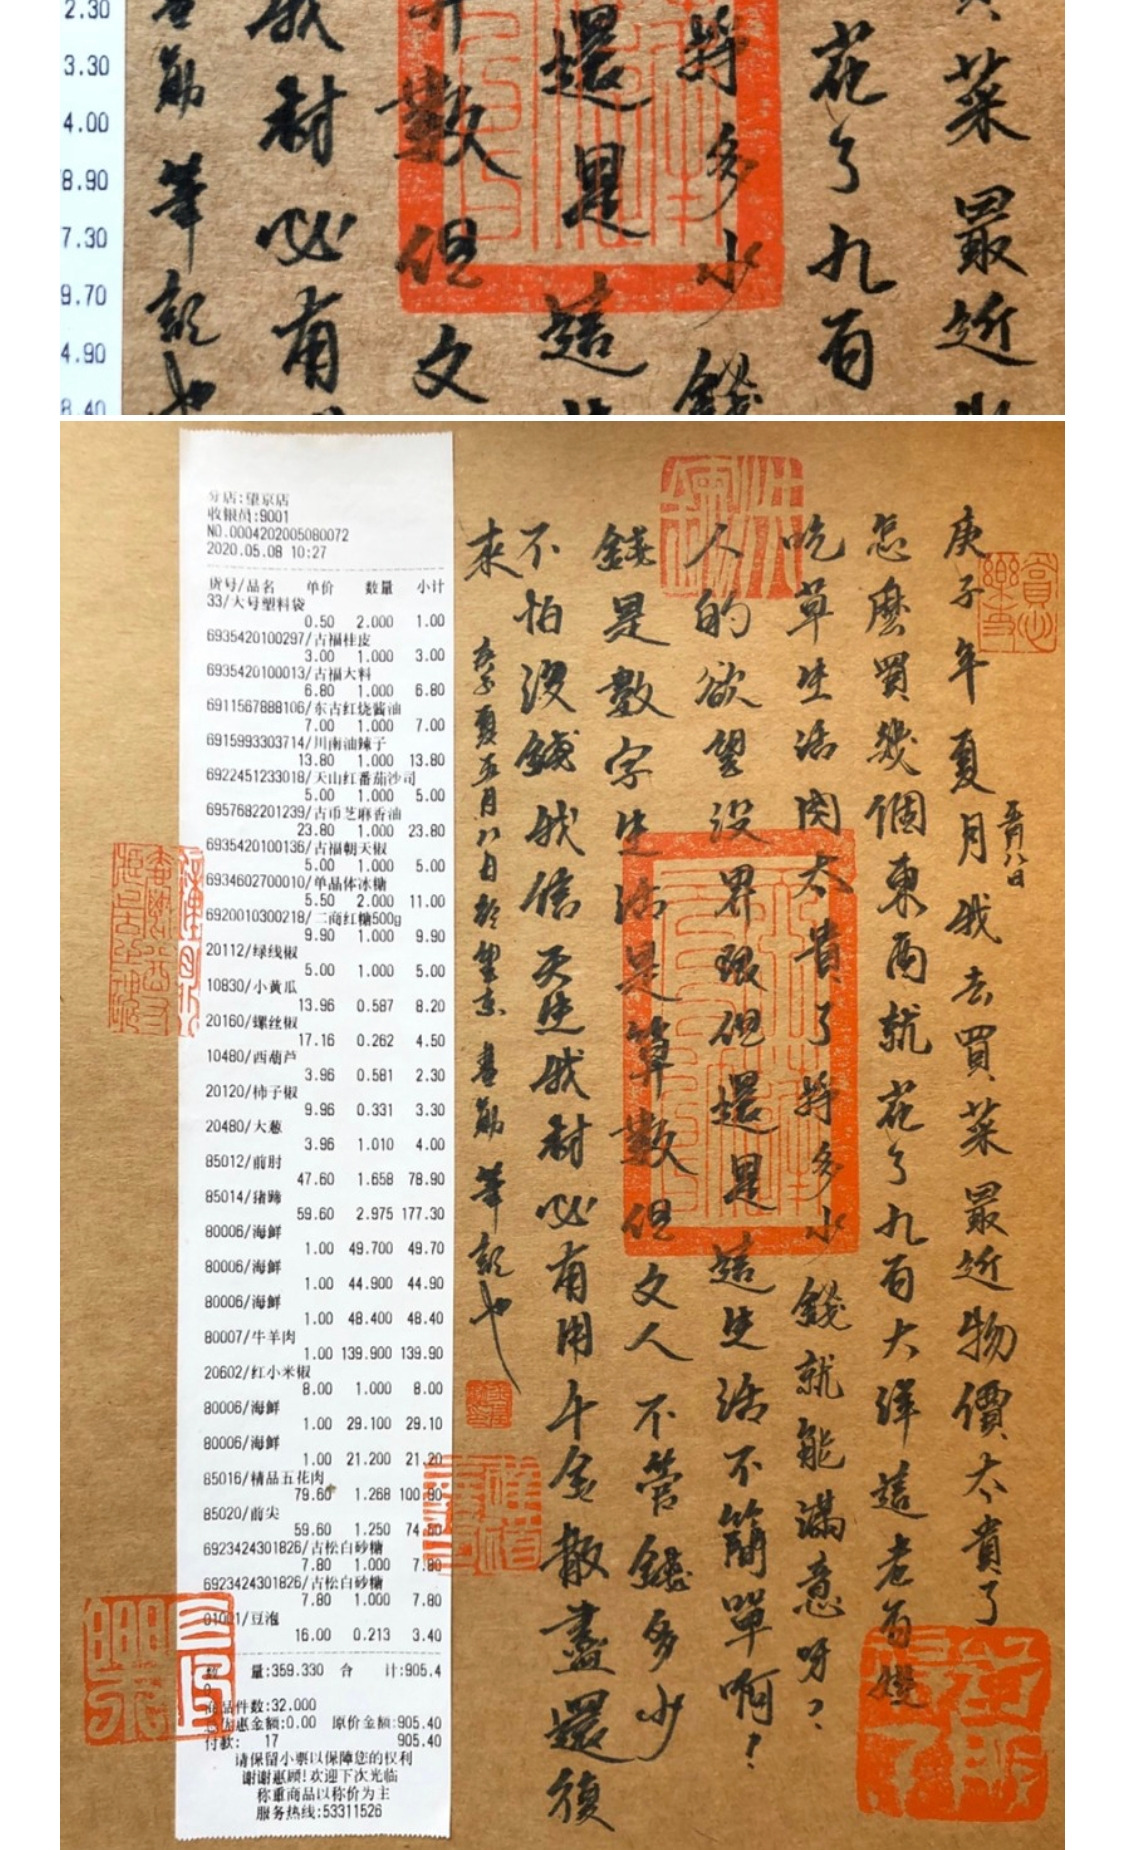 2.30
3.30
4.00
8.90
7.30
9.70
4.90
8.40
菜最近
花了九百
掙多少錢
還是這
數但文
我材必有
勛筆記也
分店:望京店
收银员:9001
NO.0004202005080072
2020.05.08 10:27
货号/品名 单价 数量 小计
33/大号塑料袋
0.50 2.000 1.00
6935420100297/古福桂皮
3.00 1.000 3.00
6935420100013/古福大料
6.80 1.000 6.80
6911567888106/东古红烧酱油
7.00 1.000 7.00
6915993303714/川南油辣子
13.80 1.000 13.80
6922451233018/天山红番茄沙司
5.00 1.000 5.00
6957682201239/古币芝麻香油
23.80 1.000 23.80
6935420100136/古福朝天椒
5.00 1.000 5.00
6934602700010/单晶体冰糖
5.50 2.000 11.00
6920010300218/二商红糖500g
9.90 1.000 9.90
20112/绿线椒
5.00 1.000 5.00
10830/小黄瓜
13.96 0.587 8.20
20160/螺丝椒
17.16 0.262 4.50
10480/西葫芦
3.96 0.581 2.30
20120/柿子椒
9.96 0.331 3.30
20480/大葱
3.96 1.010 4.00
85012/前肘
47.60 1.658 78.90
85014/猪蹄
59.60 2.975 177.30
80006/海鲜
1.00 49.700 49.70
80006/海鲜
1.00 44.900 44.90
80006/海鲜
1.00 48.400 48.40
80007/牛羊肉
1.00 139.900 139.90
20602/红小米椒
8.00 1.000 8.00
80006/海鲜
1.00 29.100 29.10
80006/海鲜
1.00 21.200 21.20
85016/精品五花肉
79.60 1.268 100.90
85020/前尖
59.60 1.250 74.50
6923424301826/古松白砂糖
7.80 1.000 7.80
6923424301826/古松白砂糖
7.80 1.000 7.80
01001/豆泡
16.00 0.213 3.40
数 量:359.330 合 计:905.4
0
商品件数:32.000
总优惠金额:0.00 原价金额:905.40
付款: 17 905.40
请保留小票以保障您的权利
谢谢惠顾!欢迎下次光临
称重商品以称价为主
服务热线:53311526
庚子年夏月我去買菜最近物價太貴了
五月八日
怎麼買幾個東西就花了九百大洋這老百姓
吃草生活肉太貴了掙多少錢就能滿意呀？
人的欲望没界限但還是這生活不簡單啊！
錢是數字生活是算數但文人不管錢多少
不怕没錢我信天生我材必有用千金散盡還復
來
庚子夏五月八日於望京書勛筆記也